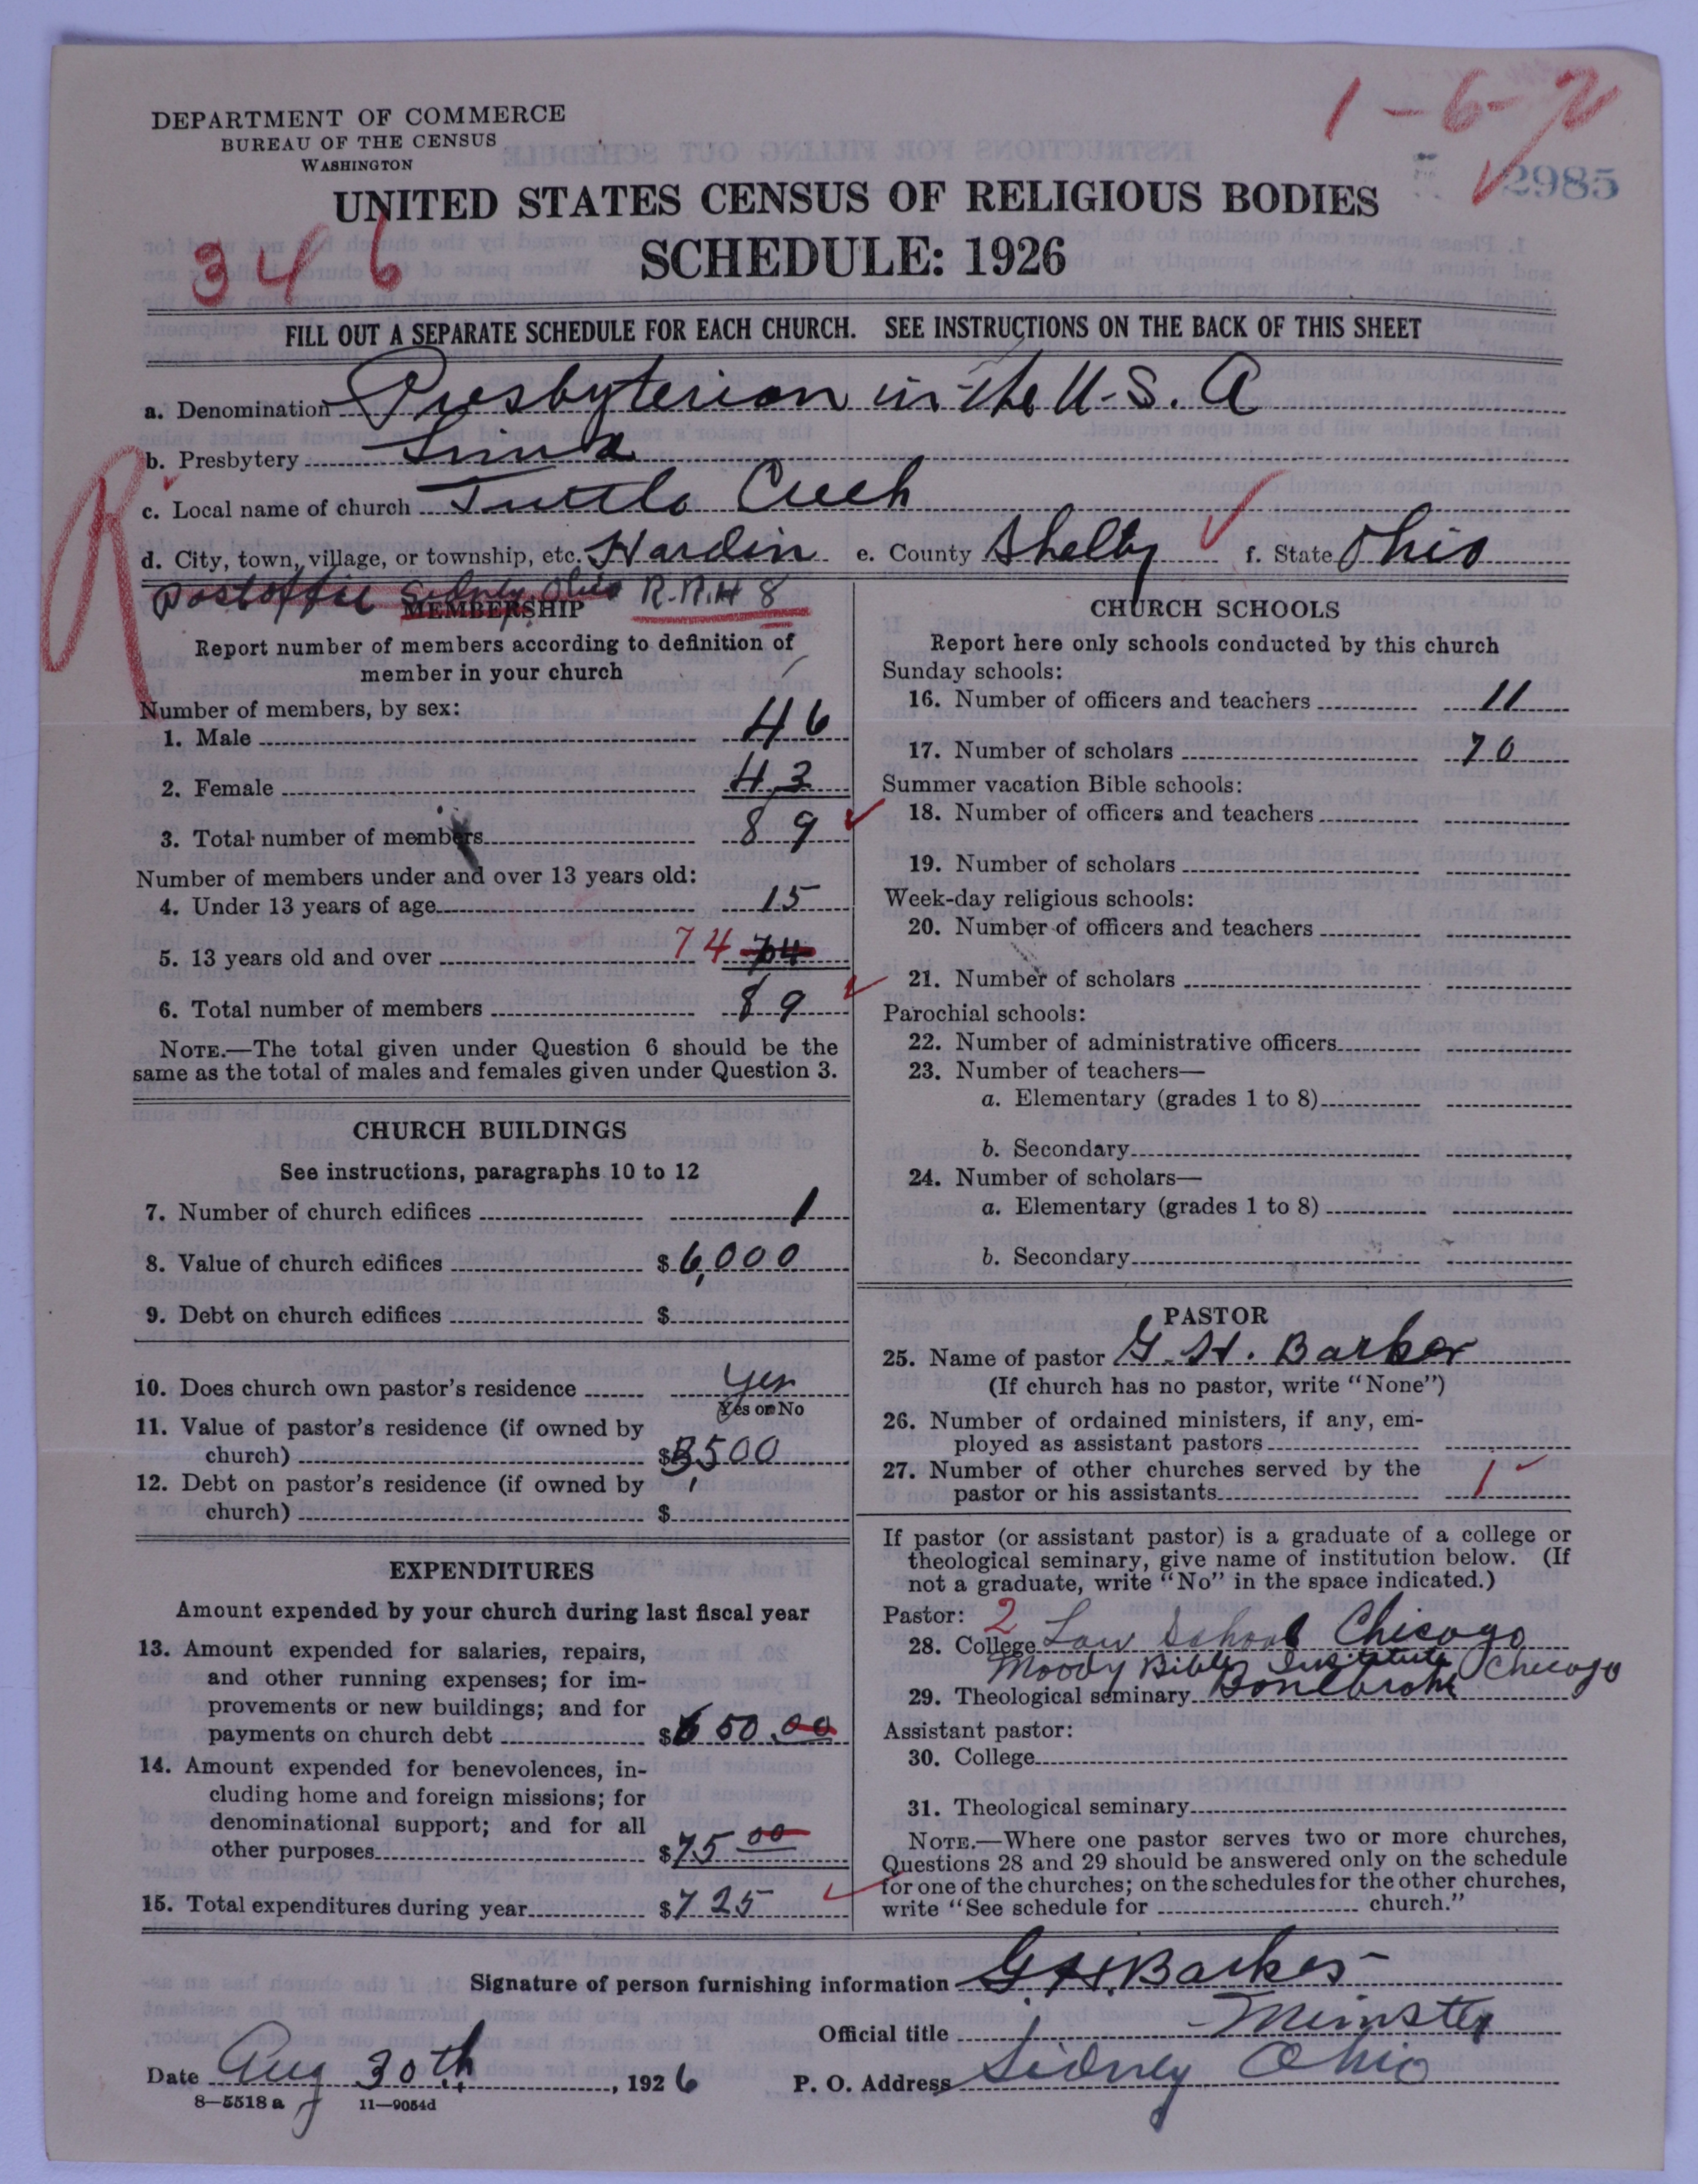 DEPARTMENT OF COMMERCE
BUREAU OF THE CENSUS
WASHINGTON
1-6-2
2985
UNITED STATES CENSUS OF RELIGIOUS BODIES
SCHEDULE: 1926
346
FILL OUT A SEPARATE SCHEDULE FOR EACH CHURCH. SEE INSTRUCTIONS ON THE BACK OF THIS SHEET
a. Denomination Presbyterian in the U.S. A
b. Presbytery Lima
R
c. Local name of church Turtle Creek
d. City, town, village, or township, etc. Hardin e. County Shelby f. State Ohio
Postoffic Sidney Ohio R.R.# 8
MEMBERSHIP
Report number of members according to definition of
member in your church
Number of members, by sex:
1. Male 46
2. Female 43
3. Total number of members 89
Number of members under and over 13 years old:
4. Under 13 years of age 15
5. 13 years old and over 74 74
6. Total number of members 89
NOTE.—The total given under Question 6 should be the
same as the total of males and females given under Question 3.
CHURCH BUILDINGS
See instructions, paragraphs 10 to 12
7. Number of church edifices 1
8. Value of church edifices $ 6,000
9. Debt on church edifices $
10. Does church own pastor's residence Yes
Yes or No
11. Value of pastor's residence (if owned by
church) $ 3,500
12. Debt on pastor's residence (if owned by
church) $
EXPENDITURES
Amount expended by your church during last fiscal year
13. Amount expended for salaries, repairs,
and other running expenses; for im-
provements or new buildings; and for
payments on church debt $ 650.00
14. Amount expended for benevolences, in-
cluding home and foreign missions; for
denominational support; and for all
other purposes $ 75 00
15. Total expenditures during year $ 725
CHURCH SCHOOLS
Report here only schools conducted by this church
Sunday schools:
16. Number of officers and teachers 11
17. Number of scholars 70
Summer vacation Bible schools:
18. Number of officers and teachers
19. Number of scholars
Week-day religious schools:
20. Number of officers and teachers
21. Number of scholars
Parochial schools:
22. Number of administrative officers
23. Number of teachers—
a. Elementary (grades 1 to 8)
b. Secondary
24. Number of scholars—
a. Elementary (grades 1 to 8)
b. Secondary
PASTOR
25. Name of pastor G. H. Barker
(If church has no pastor, write "None")
26. Number of ordained ministers, if any, em-
ployed as assistant pastors
27. Number of other churches served by the
pastor or his assistants 1
If pastor (or assistant pastor) is a graduate of a college or
theological seminary, give name of institution below. (If
not a graduate, write "No" in the space indicated.)
Pastor: 2
28. College Law School Chicago
Moody Bible Institute Chicago
29. Theological seminary Bonebrake
Assistant pastor:
30. College
31. Theological seminary
NOTE.—Where one pastor serves two or more churches,
Questions 28 and 29 should be answered only on the schedule
for one of the churches; on the schedules for the other churches,
write "See schedule for church."
Signature of person furnishing information G. H. Barker
Official title Minster
Date Aug 30th, 1926 P. O. Address Sidney Ohio
8—5518 a 11—9054d